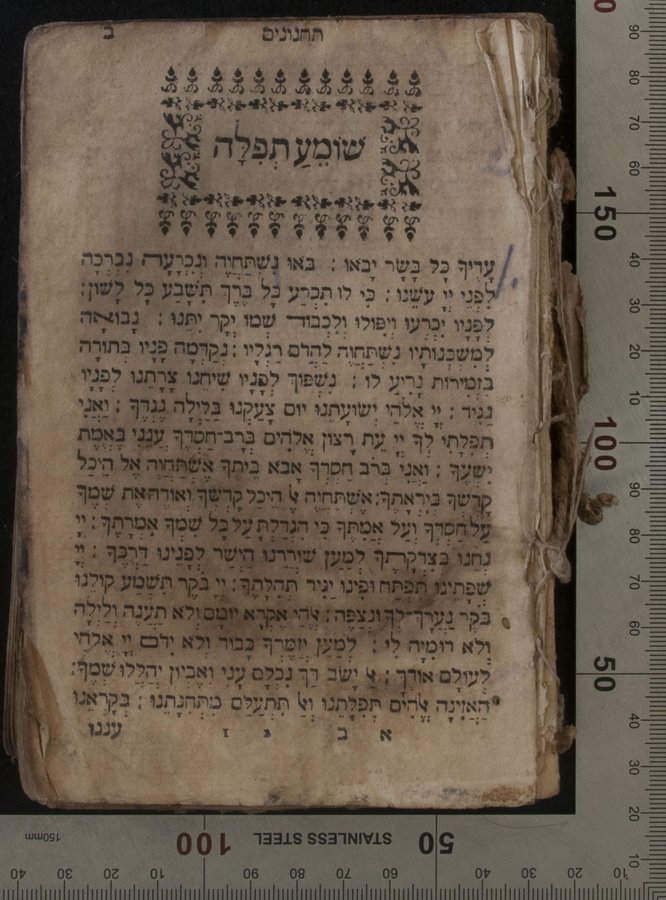 תחנונים ב
שׁוֹמֵעַ תְּפִלָּה
עָדֶיךָ כָּל בָּשָׂר יָבֹאוּ : בֹּאוּ נִשְׁתַּחֲוֶה וְנִכְרָעָה נִבְרְכָה
לִפְנֵי יְיָ עֹשֵׂנוּ : כִּי לוֹ תִכְרַע כָּל בֶּרֶךְ תִּשָּׁבַע כָּל לָשׁוֹן:
לְפָנָיו יִכְרְעוּ וְיִפּוֹלוּ וְלִכְבוֹד שְׁמוֹ יְקָר יִתֵּנוּ : נָבוֹאָה
לְמִשְׁכְּנוֹתָיו נִשְׁתַּחֲוֶה לַהֲדֹם רַגְלָיו : נְקַדְּמָה פָנָיו בְּתוֹדָה
בִּזְמִירוֹת נָרִיעַ לוֹ : נִשְׁפּוֹךְ לְפָנָיו שִׂיחֵנוּ צָרָתֵנוּ לְפָנָיו
נַגִּיד : יְיָ אֱלֹהֵי יְשׁוּעָתֵנוּ יוֹם צָעַקְנוּ בַלַּיְלָה נֶגְדֶּךָ : וַאֲנִי
תְפִלָּתִי לְךָ יְיָ עֵת רָצוֹן אֱלֹהִים בְּרָב־חַסְדֶּךָ עֲנֵנִי בֶּאֱמֶת
יִשְׁעֶךָ : וַאֲנִי בְּרֹב חַסְדְּךָ אָבֹא בֵיתֶךָ אֶשְׁתַּחֲוֶה אֶל הֵיכַל
קָדְשְׁךָ בְּיִרְאָתֶךָ: אֶשְׁתַּחֲוֶה אֶל הֵיכַל קָדְשְׁךָ וְאוֹדֶה אֶת שְׁמֶךָ
עַל חַסְדְּךָ וְעַל אֲמִתֶּךָ כִּי הִגְדַּלְתָּ עַל כָּל שִׁמְךָ אִמְרָתֶךָ : יְיָ
נְחֵנוּ בְצִדְקָתֶךָ לְמַעַן שׁוֹרְרֵנוּ הַיְשַׁר לְפָנֵינוּ דַּרְכֶּךָ : יְיָ
שְׂפָתֵינוּ תִּפְתַּח וּפִינוּ יַגִּיד תְּהִלָּתֶךָ : יְיָ בֹּקֶר תִּשְׁמַע קוֹלֵנוּ
בֹּקֶר נַעֲרָךְ־לְךָ וּנְצַפֶּה : אֱלֹהַי אֶקְרָא יוֹמָם וְלֹא תַעֲנֶה וְלַיְלָה
וְלֹא דוּמִיָּה לִי : לְמַעַן יְזַמֶּרְךָ כָבוֹד וְלֹא יִדֹּם יְיָ אֱלֹהַי
לְעוֹלָם אוֹדֶךָּ : אַל יָשֹׁב דַּךְ נִכְלָם עָנִי וְאֶבְיוֹן יְהַלְלוּ שְׁמֶךָ:
הַאֲזִינָה אֱלֹהִים תְּפִלָּתֵנוּ וְאַל תִּתְעַלַּם מִתְּחִנָּתֵנוּ : בְּקָרְאֵנוּ
א ב ג ז עננו